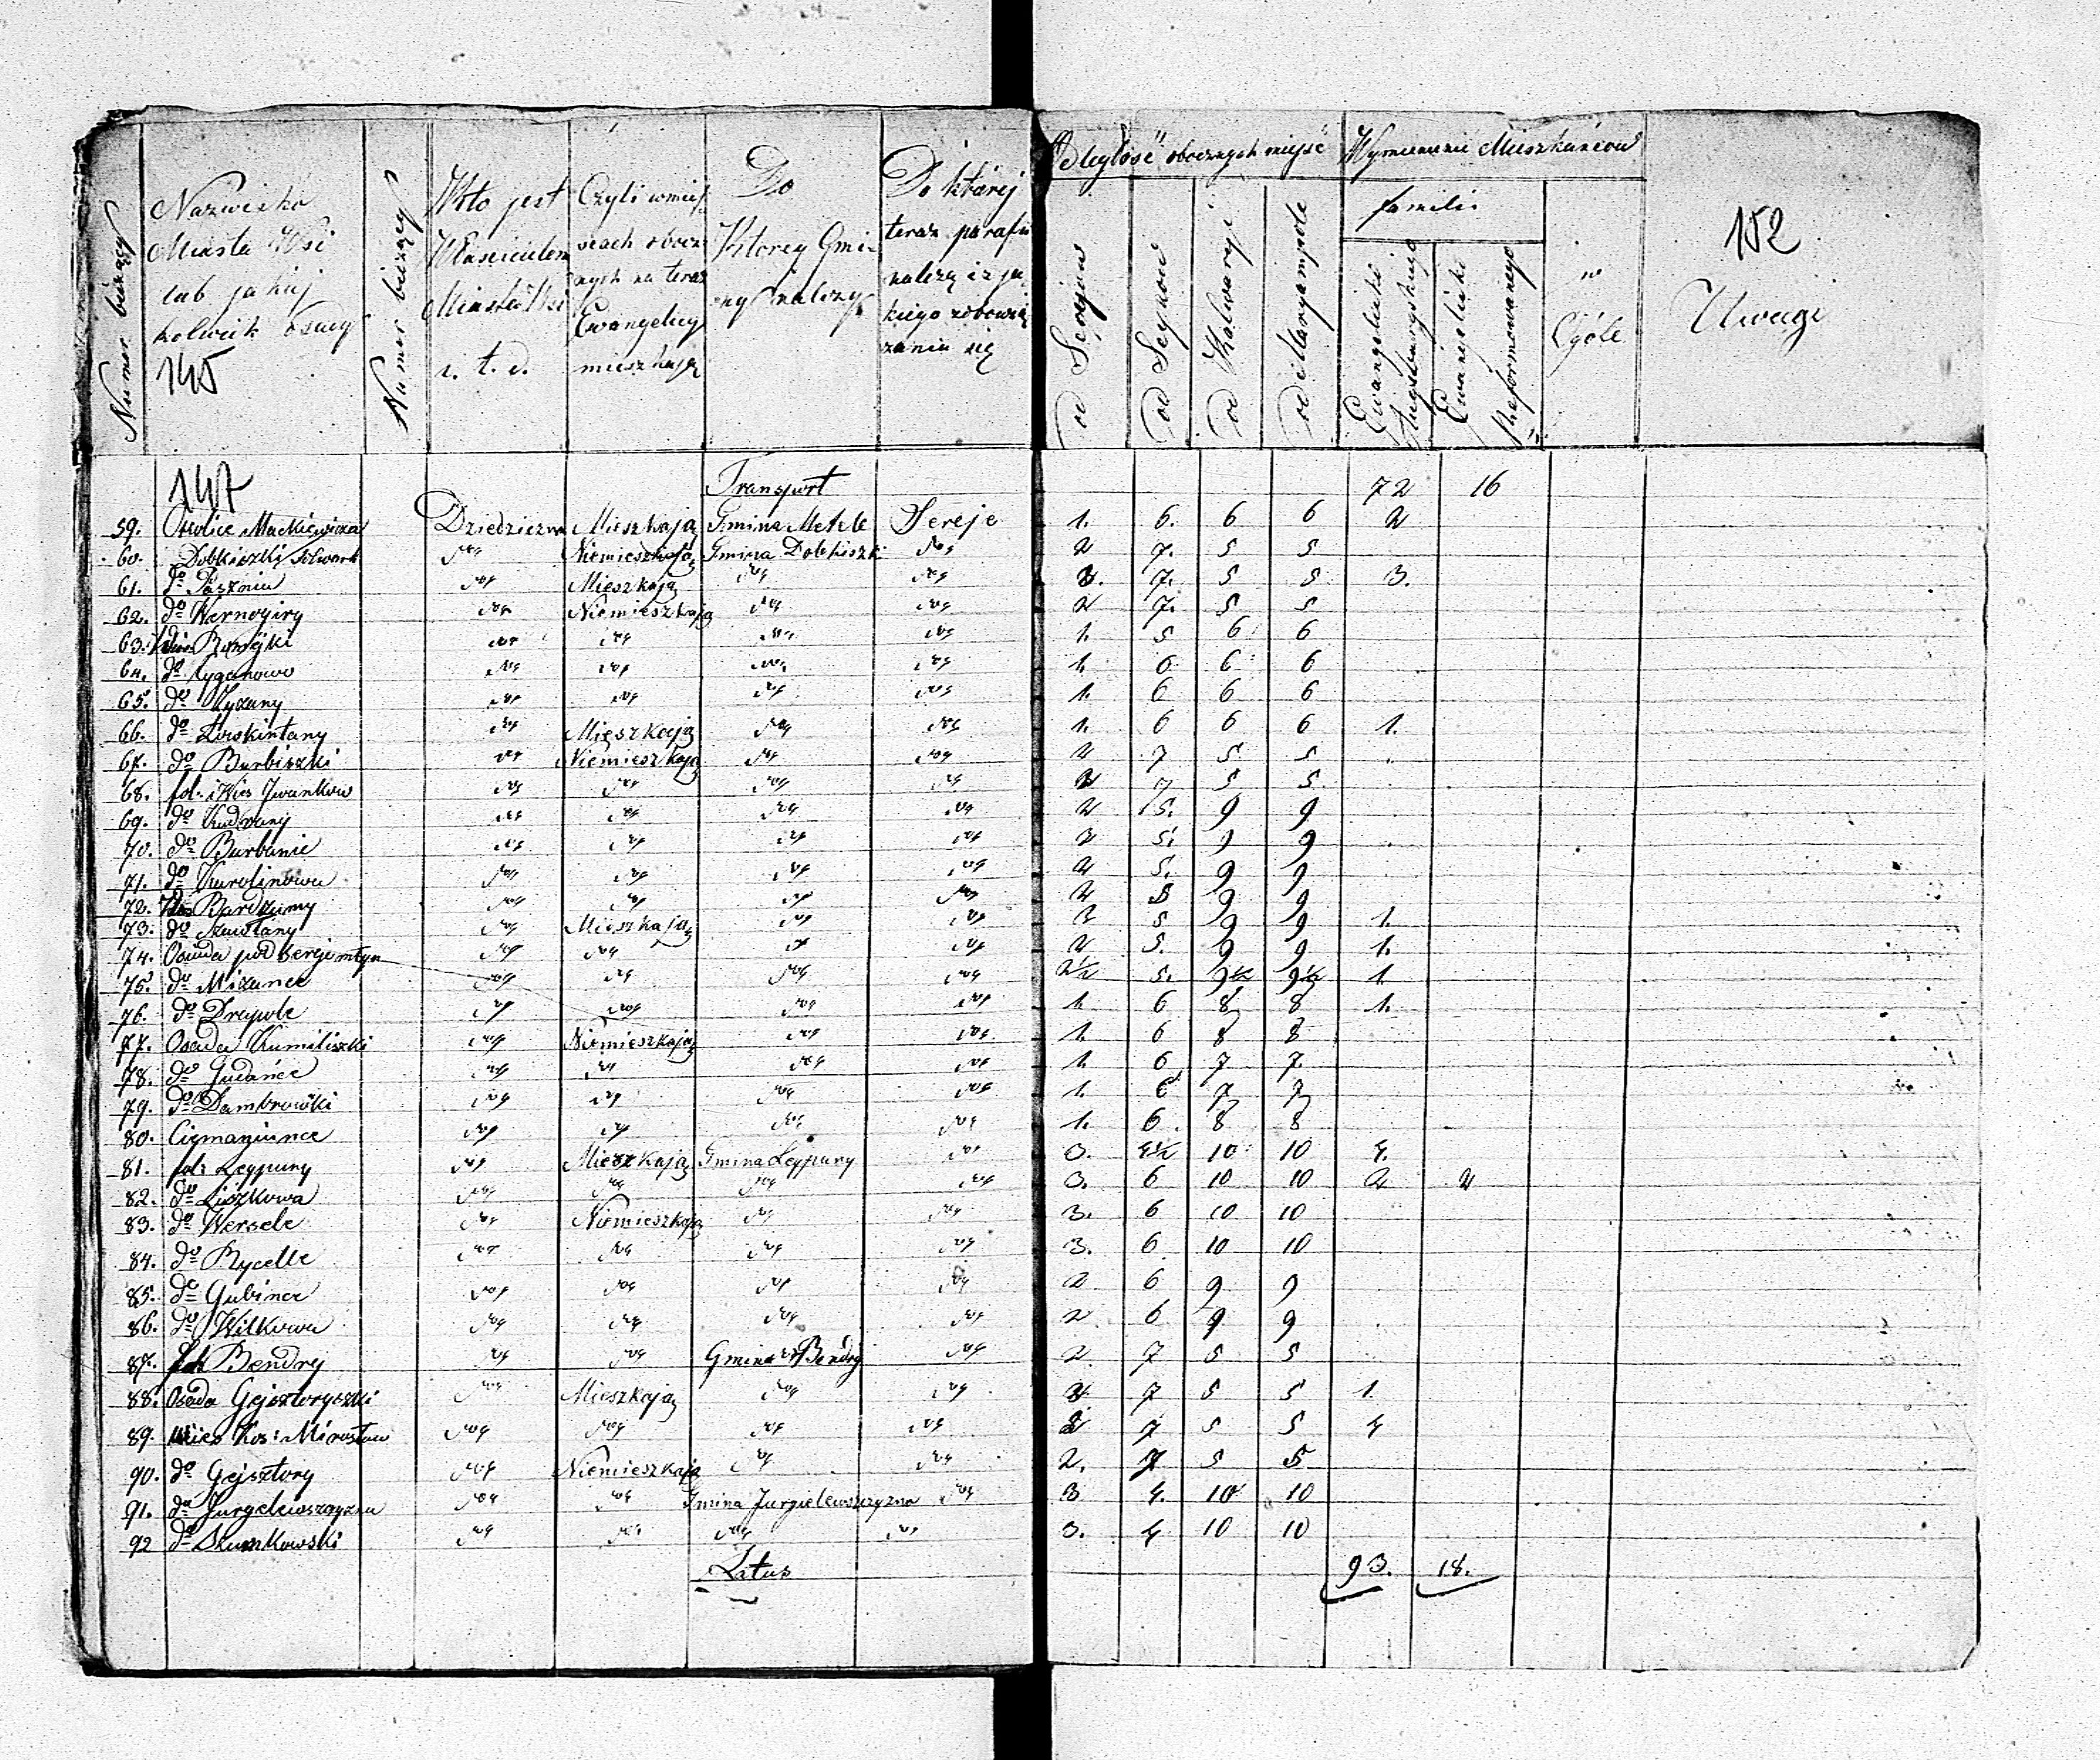 Numer bieżący
Nazwisko
Miasta Wsi
lub jakiej
kolwiek Osady
145
Numer bieżący
Kto jest
Właścicielem
Miasta Wsi
i. t. d.
Czyli w miej-
scach obocz-
nych na teraz
Ewangelicy
mieszkają
Do
Ktorey Gmi-
ny należy
Do której
teraz parafii
należą i z ja-
kiego zobowią-
zania się
Odległość obocznych miejsc
od Serejów
od Seynów
od Kalwaryi
od Maryampola
Wymienienie Mieszkańców
familii
Ewangelicki Augsburgskiego
Ewangelicki Reformowanego
w
Ogóle
152
Uwagi
147 Transport 72 16
59. Okolice Mackiewicza Dziedziczna Mieszkają Gmina Metele Sereje 1. 6. 6 6 2
60. Dobkiszki folwark do Niemieszkają Gmina Dobkiszki do 2 7. 5 5
61. do Poseznie do Mieszkają do do 2. 7. 5 5 3.
62. do Wernogiry do Niemieszkają do do 2 7. 5 5
63. Wieś Romejki do do do do 1. 5 6 6
64. do Cyganowo do do do do 1. 6 6 6
65. do Kyzany do do do do 1. 6 6 6
66. do Łoskintany do Mieszkają do do 1. 6 6 6 1.
67. do Burbiszki do Niemieszkają do do 2 7 5 5
68. fol. i Wieś Iwankow do do do do 2 7 5 5
69. do Kudrany do do do do 2 5. 9 9
70. do Burbanie do do do do 2 5. 9 9
71. do Karolinowo do do do do 2 5. 9 9
72. Wieś Bardziuny do do do do 2 5 9 9
73. do Szawłany do Mieszkają do do 2 5 9 9 1.
74. Osada pod Sereje młyn do do do do 2 5. 9 9 1.
75. do Mizance do do do do 2½ 5. 9½ 9½ 1.
76. do Drapole do do do do 1. 6 8 8 1.
77. Osada Kumiliszki do Niemieszkają do do 1. 6 8 8
78. do Gudańce do do do do 1. 6 7 7
79. do Dambrowski do do do do 1. 6 7 7
80. Ciemaziunce do do do do 1. 6 8 8
81. fol. Leypuny do Mieszkają Gmina Leypuny do 3. 4½ 10 10 4.
82. do Liszkowa do do do do 3. 6 10 10 2 2
83. do Wersele do Niemieszkają do do 3. 6 10 10
84. do Rycelle do do do do 3. 6 10 10
85. do Gubince do do do do 2 6 9 9
86. do Wilkowa do do do do 2 6 9 9
87. fol. Bendry do do Gmina Bendry do 2. 7 5 5
88. Osada Gejsztoryszki do Mieszkają do do 2 7 5 5 1.
89. Wieś Kos: Mirosław do do do do 2 7 5 5 4
90. do Gejsztory do Niemieszkają do do 2. 7 5 5
91. do Jurgelewszczyzna do do Gmina Jurgielewszczyzna do 3 4. 10 10
92 do Szumkowski do do do do 3. 4 10 10
Latus 93. 18.